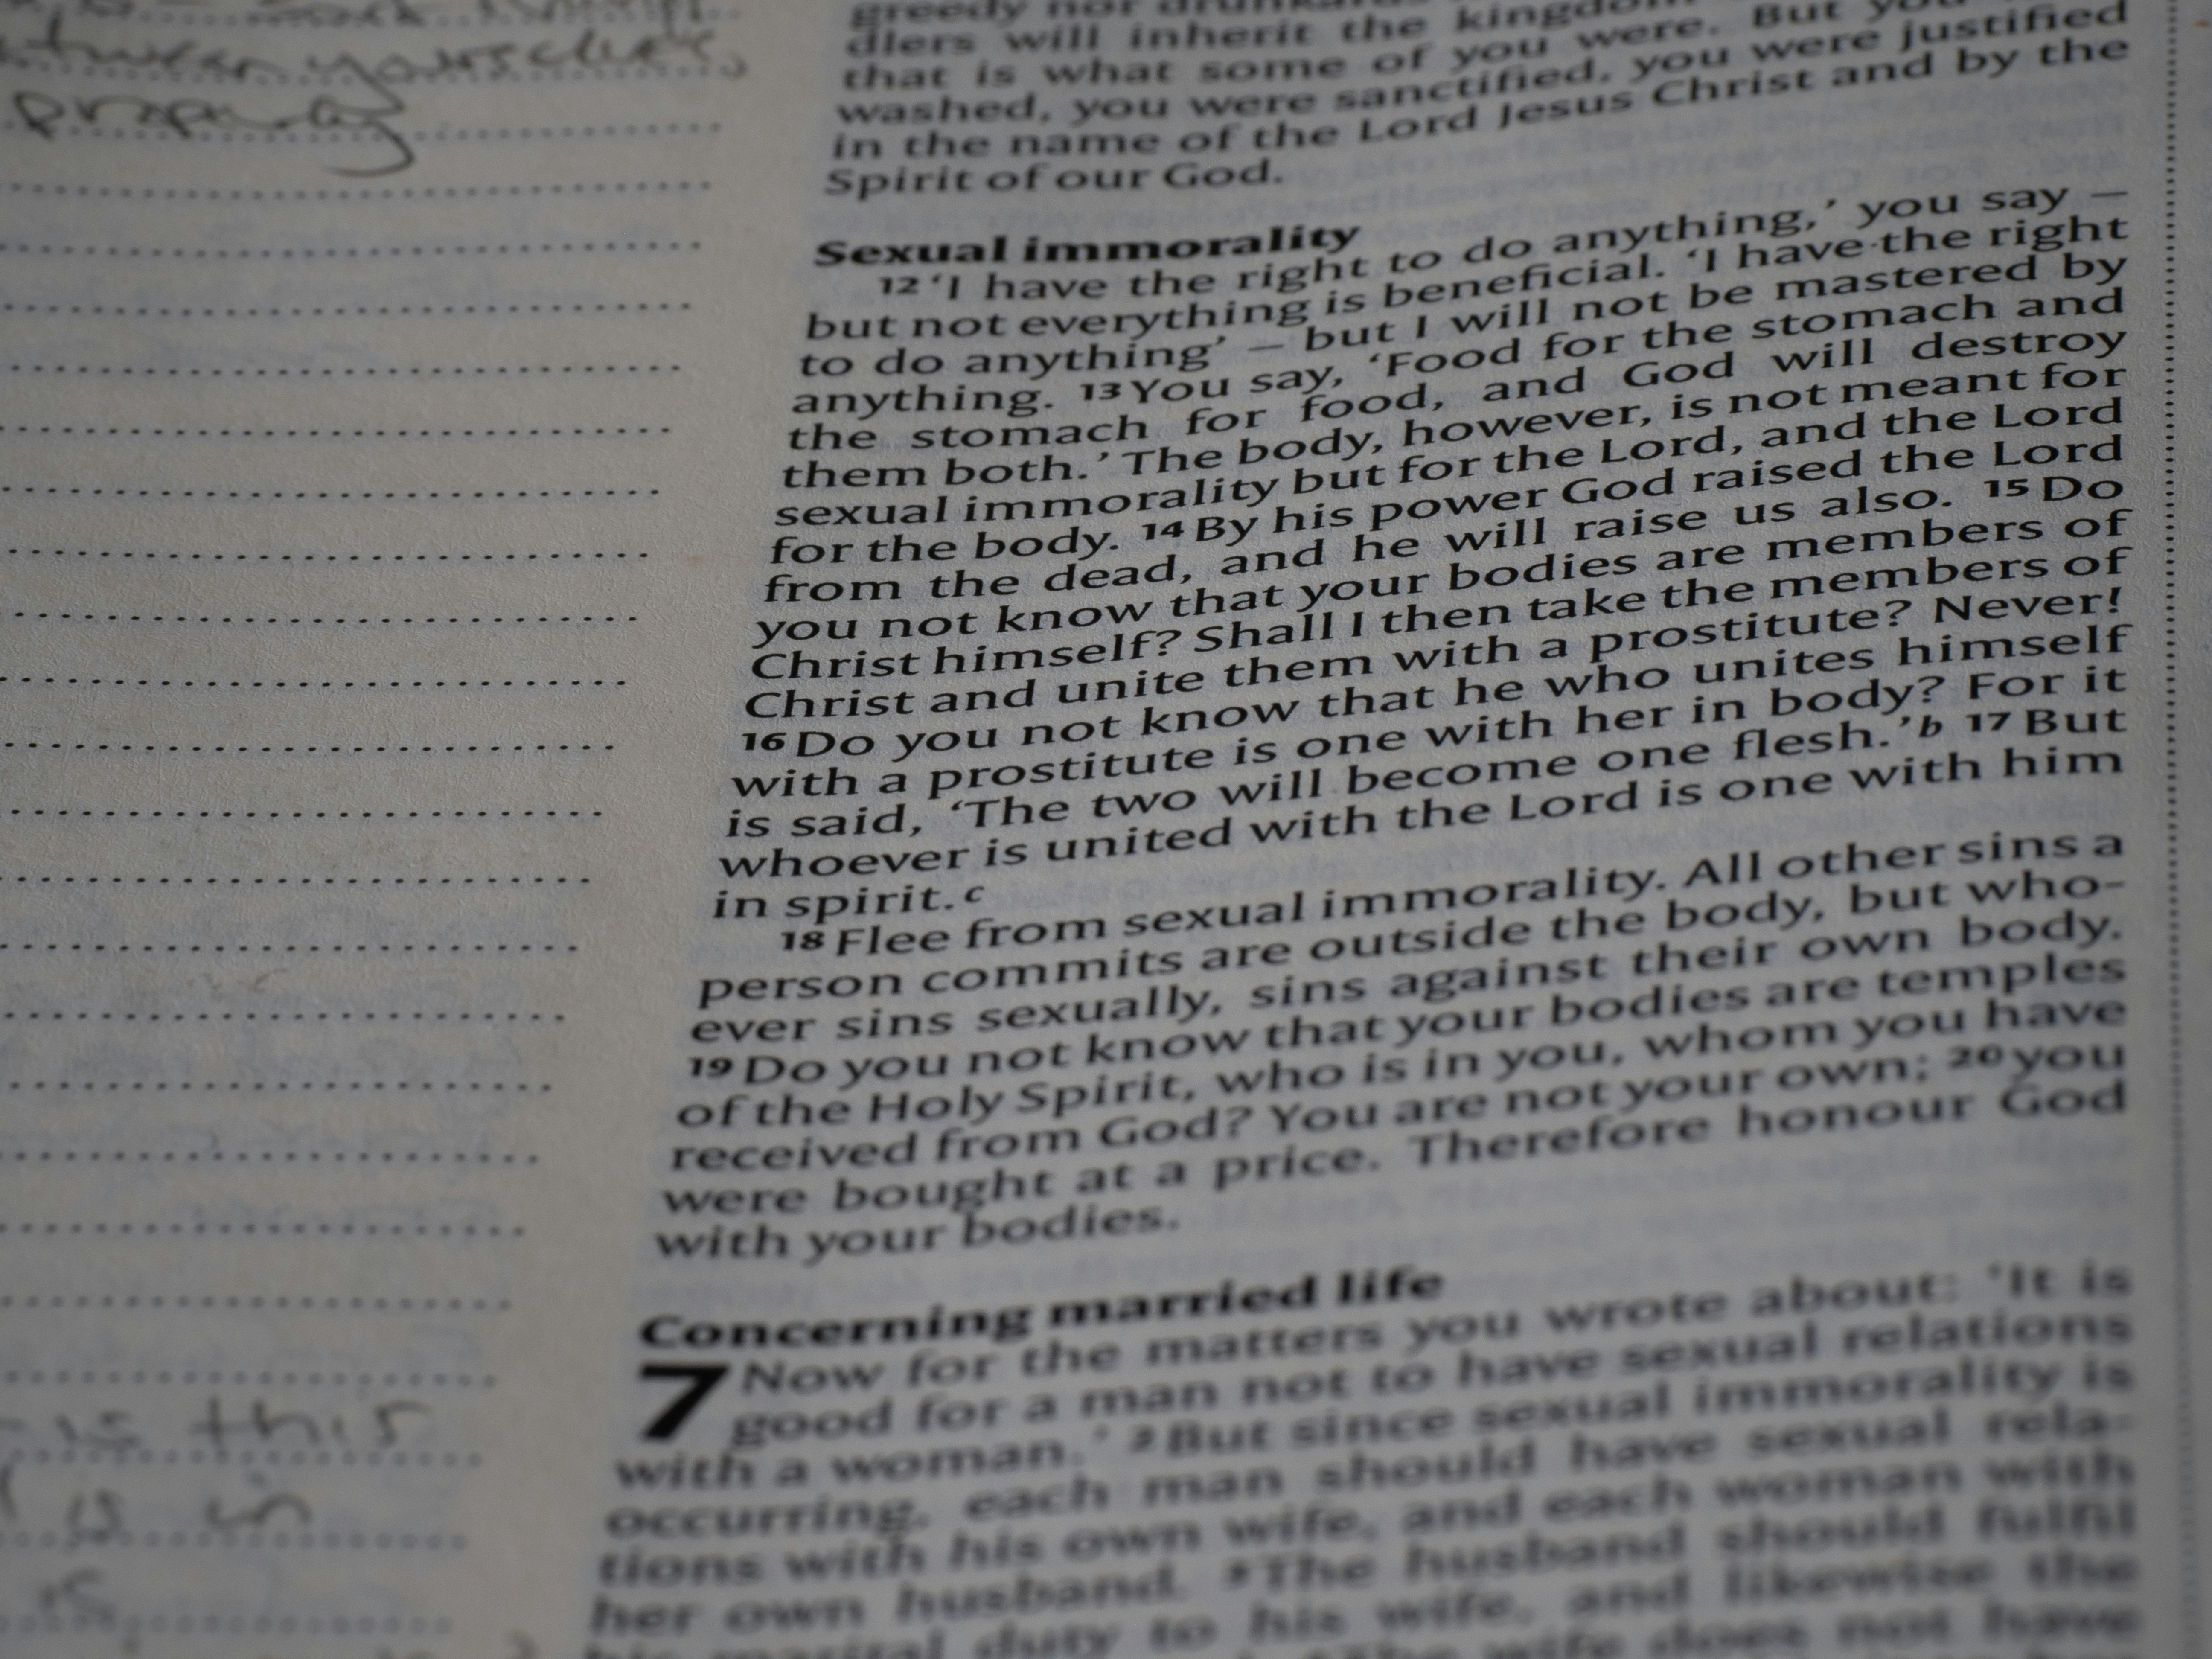 between yourselves,
properly
is this
is in
is
greedy nor drunkards
dlers will inherit the kingdom
that is what some of you were. But you
washed, you were sanctified, you were justified
in the name of the Lord Jesus Christ and by the
Spirit of our God.
Sexual immorality
12 ‘I have the right to do anything,’ you say –
but not everything is beneficial. ‘I have the right
to do anything’ – but I will not be mastered by
anything. 13 You say, ‘Food for the stomach and
the stomach for food, and God will destroy
them both.’ The body, however, is not meant for
sexual immorality but for the Lord, and the Lord
for the body. 14 By his power God raised the Lord
from the dead, and he will raise us also. 15 Do
you not know that your bodies are members of
Christ himself? Shall I then take the members of
Christ and unite them with a prostitute? Never!
16 Do you not know that he who unites himself
with a prostitute is one with her in body? For it
is said, ‘The two will become one flesh.’ b 17 But
whoever is united with the Lord is one with him
in spirit. c
18 Flee from sexual immorality. All other sins a
person commits are outside the body, but who-
ever sins sexually, sins against their own body.
19 Do you not know that your bodies are temples
of the Holy Spirit, who is in you, whom you have
received from God? You are not your own; 20 you
were bought at a price. Therefore honour God
with your bodies.
Concerning married life
7 Now for the matters you wrote about: ‘It is
good for a man not to have sexual relations
with a woman.’ 2 But since sexual immorality is
occurring, each man should have sexual rela-
tions with his own wife, and each woman with
her own husband. 3 The husband should fulfil
his marital duty to his wife, and likewise the
The wife does not have